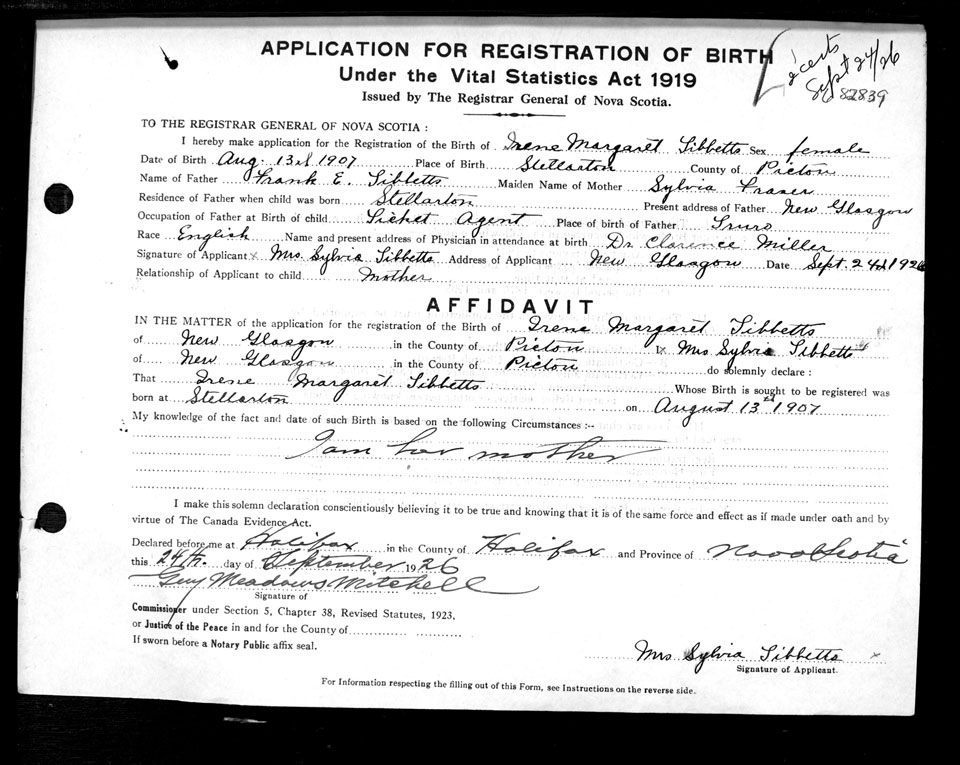 APPLICATION FOR REGISTRATION OF BIRTH
2 certs
Sept 24/26
82839
Under the Vital Statistics Act 1919
Issued by The Registrar General of Nova Scotia.
TO THE REGISTRAR GENERAL OF NOVA SCOTIA :
I hereby make application for the Registration of the Birth of Irene Margaret Tibbetts Sex female
Date of Birth Aug. 13th 1907 Place of Birth Stellarton County of Pictou
Name of Father Frank E. Tibbetts Maiden Name of Mother Sylvia Fraser
Residence of Father when child was born Stellarton Present address of Father New Glasgow
Occupation of Father at Birth of child Ticket Agent Place of birth of Father Truro
Race English Name and present address of Physician in attendance at birth Dr. Clarence Miller
Signature of Applicant x Mrs. Sylvia Tibbetts Address of Applicant New Glasgow Date Sept. 24th 1926
Relationship of Applicant to child Mother
AFFIDAVIT
IN THE MATTER of the application for the registration of the Birth of Irene Margaret Tibbetts
of New Glasgow in the County of Pictou I x Mrs Sylvia Tibbetts
of New Glasgow in the County of Pictou do solemnly declare :
That Irene Margaret Tibbetts Whose Birth is sought to be registered was
born at Stellarton on August 13th 1907
My knowledge of the fact and date of such Birth is based on the following Circumstances :--
I am her mother
I make this solemn declaration conscientiously believing it to be true and knowing that it is of the same force and effect as if made under oath and by
virtue of The Canada Evidence Act.
Declared before me at Halifax in the County of Halifax and Province of Nova Scotia
this 24th. day of September 1926
Guy Meadows Mitchell
Signature of
Commissioner under Section 5, Chapter 38, Revised Statutes, 1923,
or Justice of the Peace in and for the County of
If sworn before a Notary Public affix seal.
Mrs Sylvia Tibbetts x
Signature of Applicant.
For Information respecting the filling out of this Form, see Instructions on the reverse side.